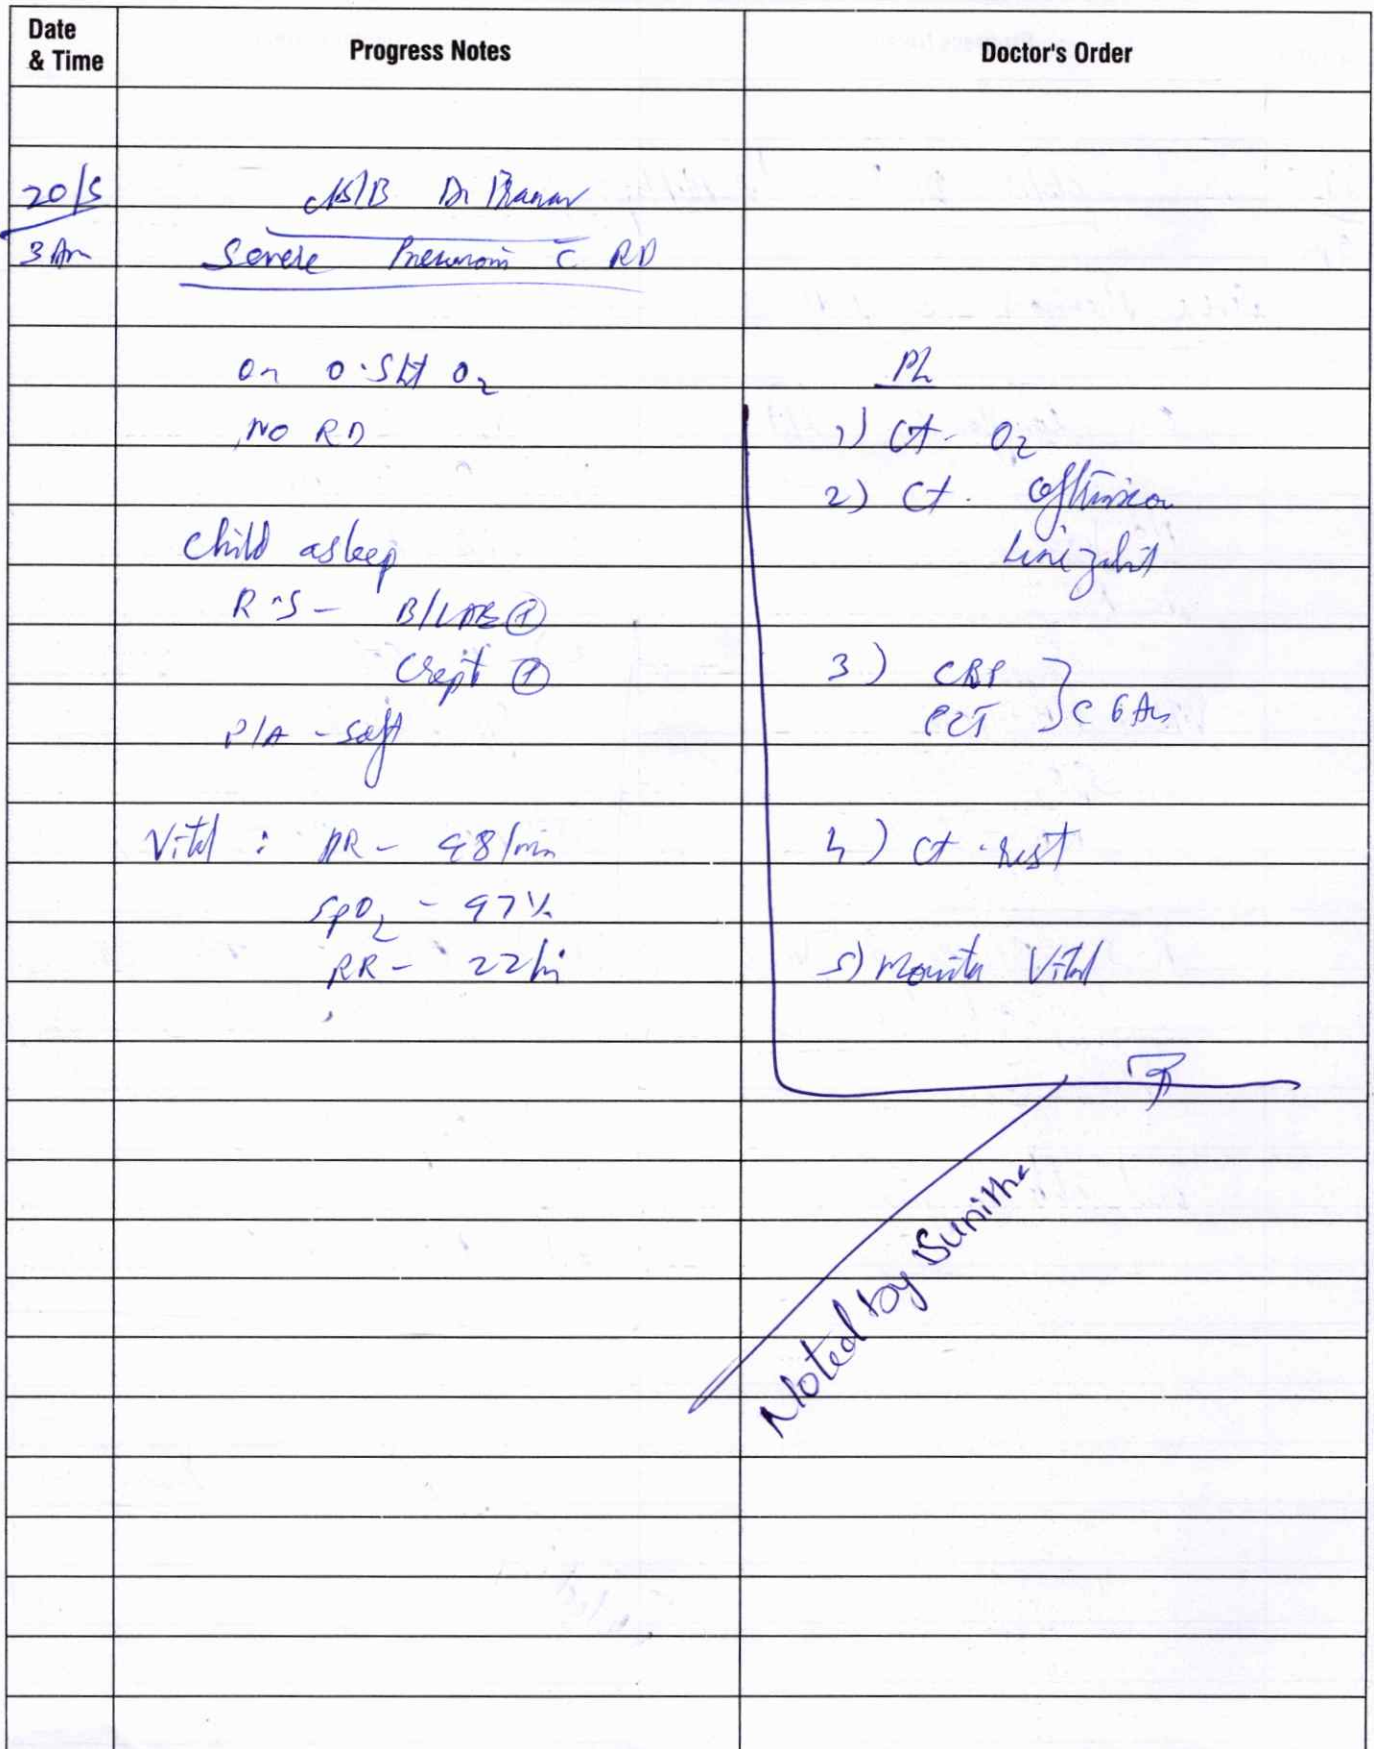 Date
& Time
Progress Notes
Doctor's Order
20/5
3 Am
C/S/B Dr Pranav
Severe Pneumoni c̄ RD
On 0.5 lit O2
NO RD
Child asleep
R.S - B/L AE (+)
Crept (+)
P/A - soft
Vital : PR - 98/min
SpO2 - 97%
RR - 22/mi
Pl
1) Ct - O2
2) Ct.
3) CBP
PCT } @ 6 Am
4) Ct. rest
5) Monitor Vital
Noted by Sunitha